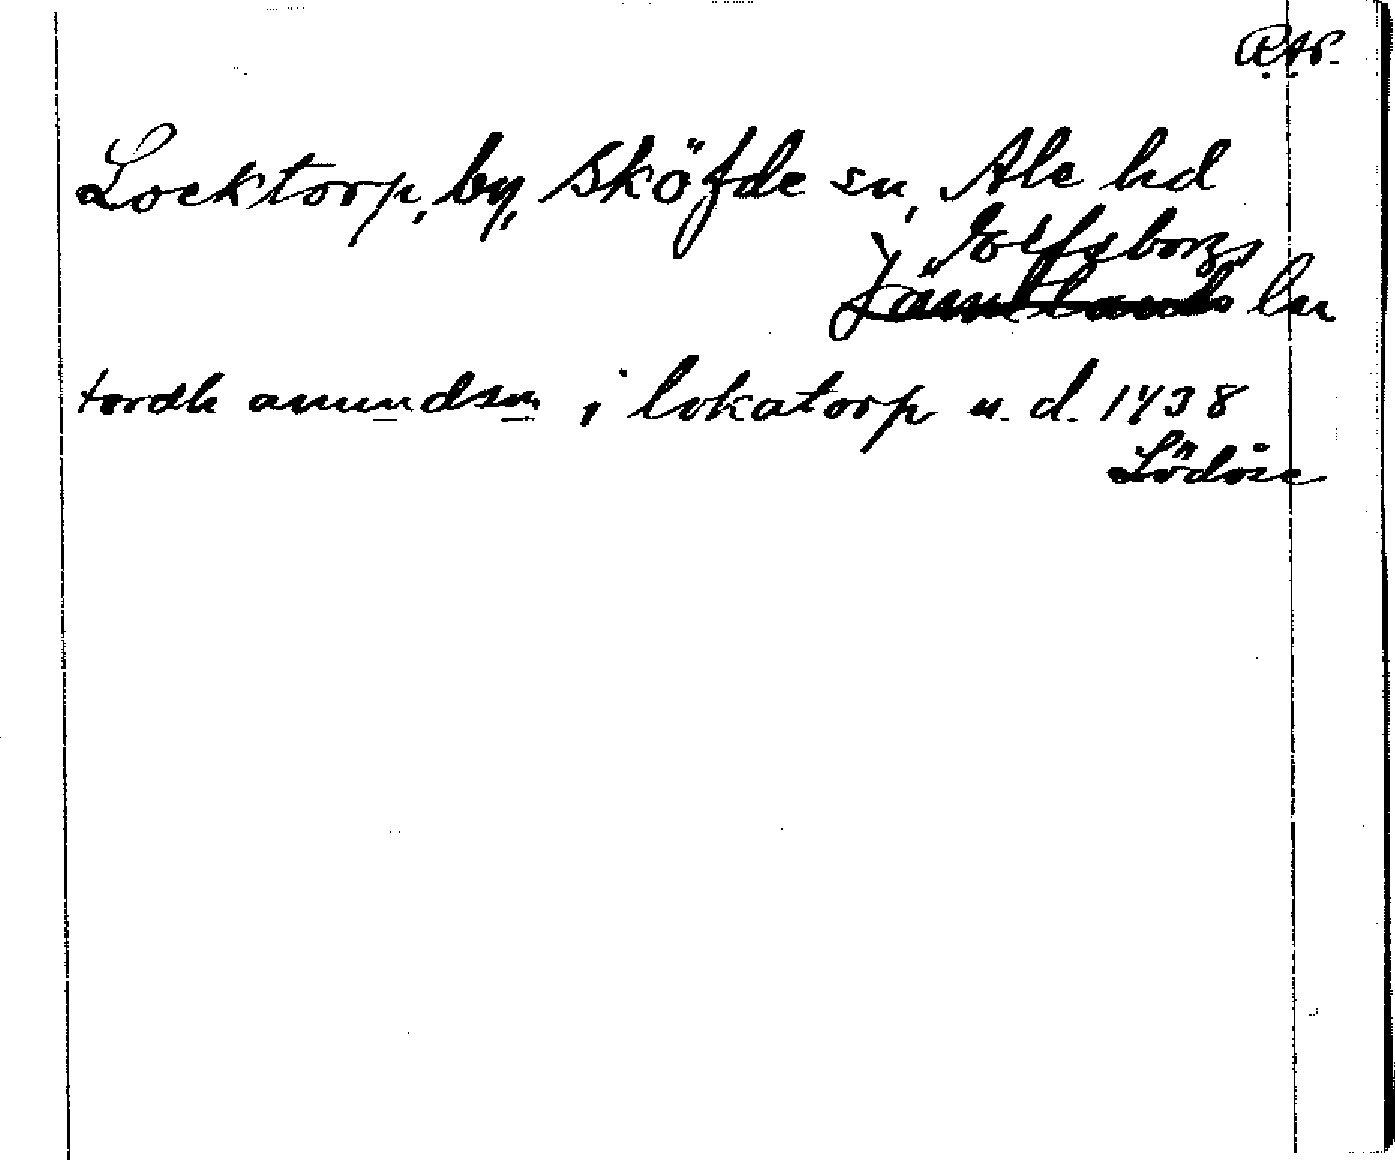 R.A.P.
Locktorp, by, Sköfde sn, Ale hd
Elfsborgs
Jämtlands län
tordh amundsen i lokatorp u. d. 1438
Lödöse